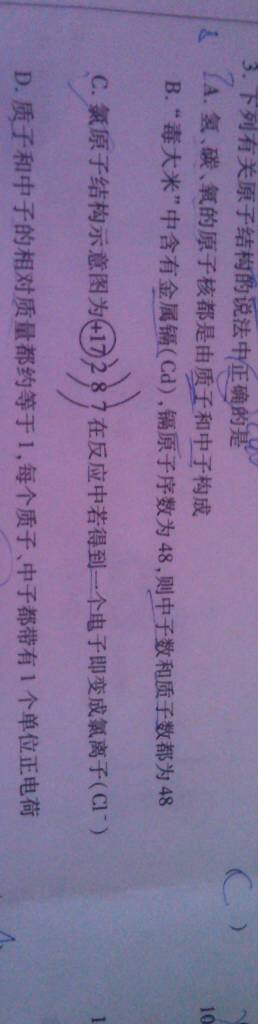 3. 下列有关原子结构的说法中正确的是 (C)
A. 氢、碳、氧的原子核都是由质子和中子构成
B. “毒大米”中含有金属镉(Cd),镉原子序数为 48,则中子数和质子数都为 48
C. 氯原子结构示意图为 +17 2 8 7 在反应中若得到一个电子即变成氯离子(Cl⁻)
D. 质子和中子的相对质量都约等于 1,每个质子、中子都带有 1 个单位正电荷
10
1